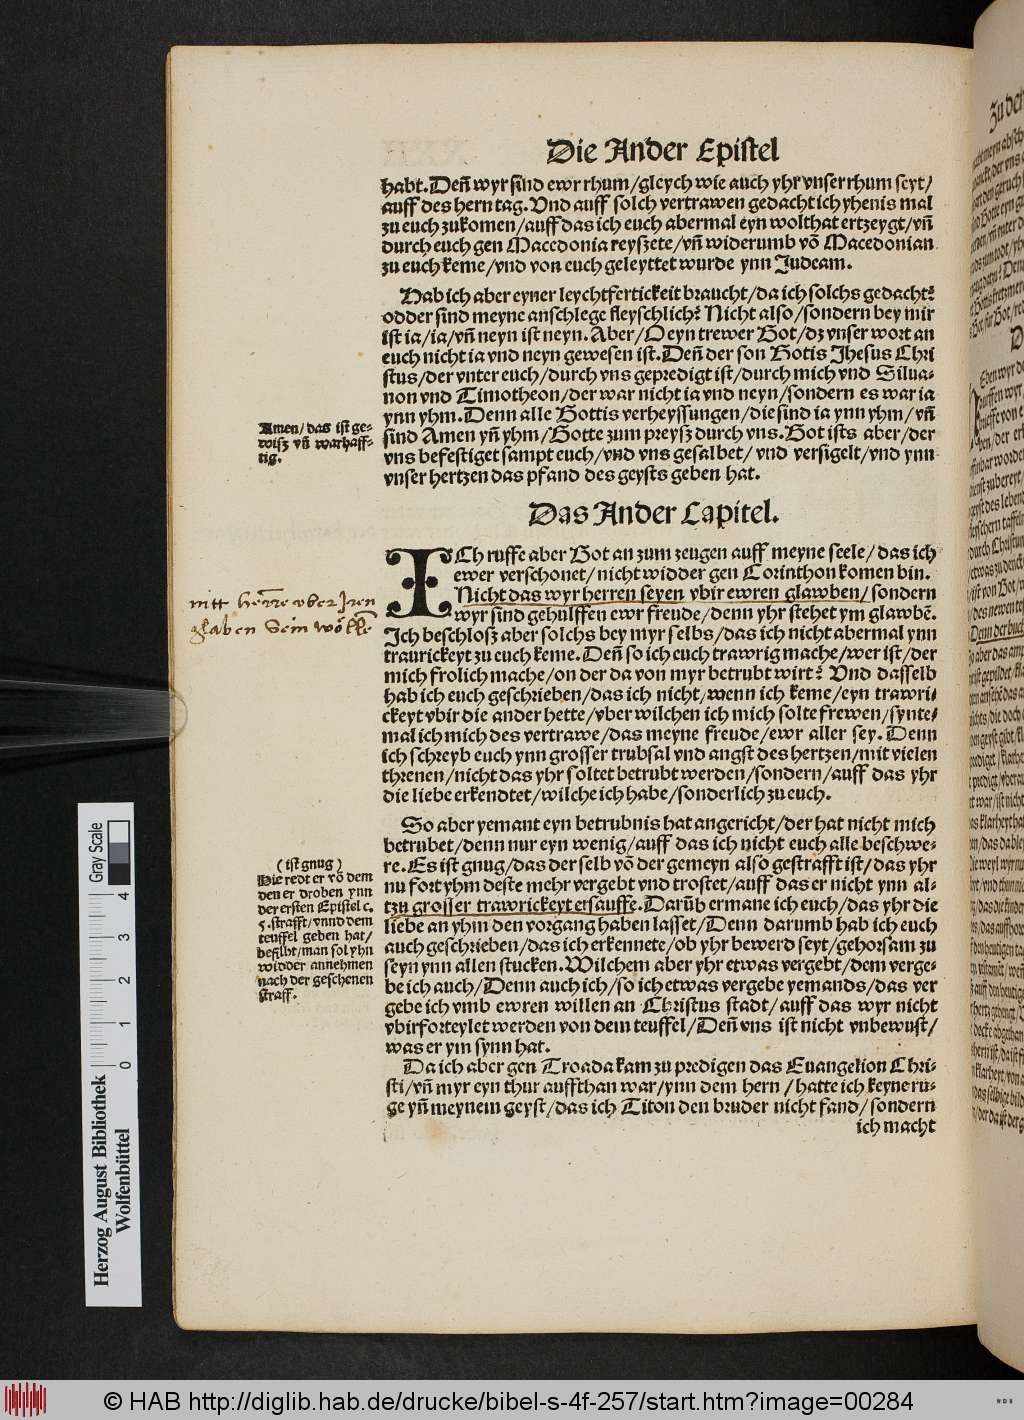 Die Ander Epistel
habt. Deñ wyr sind ewr rhum/gleych wie auch yhr vnser rhum seyt/
auff des hern tag. Vnd auff solch vertrawen gedacht ich yhenis mal
zu euch zukomen/auff das ich euch abermal eyn wolthat ertzeygt/vñ
durch euch gen Macedonia reyszete/vñ widerumb võ Macedonian
zu euch keme/vnd von euch geleyttet wurde ynn Judeam.
Hab ich aber eyner leychtfertickeit braucht/da ich solchs gedacht?
odder sind meyne anschlege fleyschlich? Nicht also/sondern bey mir
ist ia/ia/vñ neyn ist neyn. Aber/O eyn trewer Got/dz vnser wort an
euch nicht ia vnd neyn gewesen ist. Deñ der son Gotis Jhesus Chri
stus/der vnter euch/durch vns gepredigt ist/durch mich vnd Silua-
non vnd Timotheon/der war nicht ia vnd neyn/sondern es war ia
ynn yhm. Denn alle Gottis verheyssungen/die sind ia ynn yhm/vñ
sind Amen yñ yhm/Gotte zum preysz durch vns. Got ists aber/der
vns befestiget sampt euch/vnd vns gesalbet/vnd versigelt/vnd ynn
vnser hertzen das pfand des geysts geben hat.
Amen/das ist ge-
wisz vñ warhaff-
tig.
Das Ander Capitel.
ICh ruffe aber Got an zum zeugen auff meyne seele/das ich
ewer verschonet/nicht widder gen Corinthon komen bin.
Nicht das wyr herren seyen vbir ewren glawben/sondern
wyr sind gehulffen ewr freude/denn yhr stehet ym glawbẽ.
Ich beschlosz aber solchs bey myr selbs/das ich nicht abermal ynn
traurickeyt zu euch keme. Deñ so ich euch trawrig mache/wer ist/der
mich frolich mache/on der da von myr betrubt wirt? Vnd dasselb
hab ich euch geschrieben/das ich nicht/wenn ich keme/eyn trawri-
ckeyt vbir die ander hette/vber wilchen ich mich solte frewen/synte-
mal ich mich des vertrawe/das meyne freude/ewr aller sey. Denn
ich schreyb euch ynn grosser trubsal vnd angst des hertzen/mit vielen
threnen/nicht das yhr soltet betrubt werden/sondern/auff das yhr
die liebe erkendtet/wilche ich habe/sonderlich zu euch.
nitt herre vber Iren
glaben Sein wölle
So aber yemant eyn betrubnis hat angericht/der hat nicht mich
betrubet/denn nur eyn wenig/auff das ich nicht euch alle beschwe-
re. Es ist gnug/das der selb võ der gemeyn also gestrafft ist/das yhr
nu fort yhm deste mehr vergebt vnd trostet/auff das er nicht ynn al-
tzu grosser trawrickeyt ersauffe. Darüb ermane ich euch/das yhr die
liebe an yhm den vorgang haben lasset/Denn darumb hab ich euch
auch geschrieben/das ich erkennete/ob yhr bewerd seyt/gehorsam zu
seyn ynn allen stucken. Wilchem aber yhr etwas vergebt/dem verge-
be ich auch/Denn auch ich/so ich etwas vergebe yemands/das ver
gebe ich vmb ewren willen an Christus stadt/auff das wyr nicht
vbirforteylet werden von dem teuffel/Deñ vns ist nicht vnbewust/
was er ym synn hat.
(ist gnug)
Hie redt er võ dem
den er droben ynn
der ersten Epistel c.
5. strafft/vnnd dem
teuffel geben hat/
befilht/man sol yhn
widder annehmen
nach der geschenen
straff.
Da ich aber gen Troada kam zu predigen das Euangelion Chri-
sti/vñ myr eyn thur auffthan war/ynn dem hern/hatte ich keyne ru-
ge yñ meynem geyst/das ich Titon den bruder nicht fand/sondern
ich macht
Gray Scale
0 1 2 3 4
Herzog August Bibliothek
Wolfenbüttel
© HAB http://diglib.hab.de/drucke/bibel-s-4f-257/start.htm?image=00284